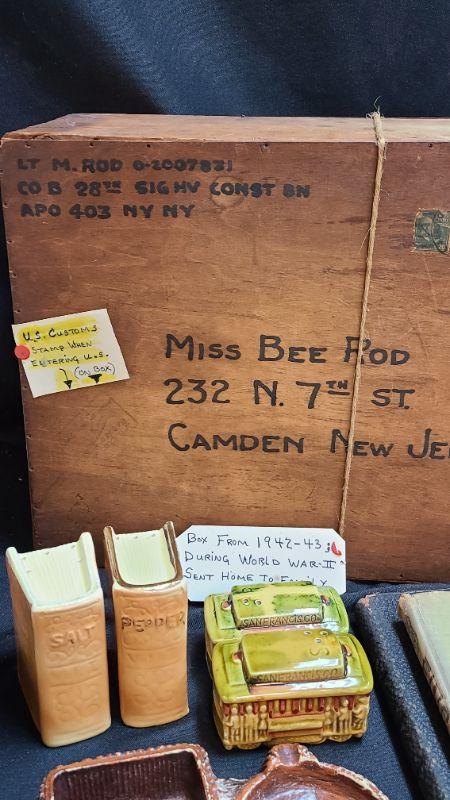 LT M. ROD O-2007831
CO B 28TH SIG HV CONST BN
APO 403 NY NY
U.S. CUSTOMS
STAMP WHEN
ENTERING U.S.
(ON BOX)
MISS BEE ROD
232 N. 7TH ST.
CAMDEN NEW JE
BOX FROM 1942-43
DURING WORLD WAR-II
SENT HOME TO FAMILY
SALT
PEPPER
SANFRANCISCO
SANFRANCISCO